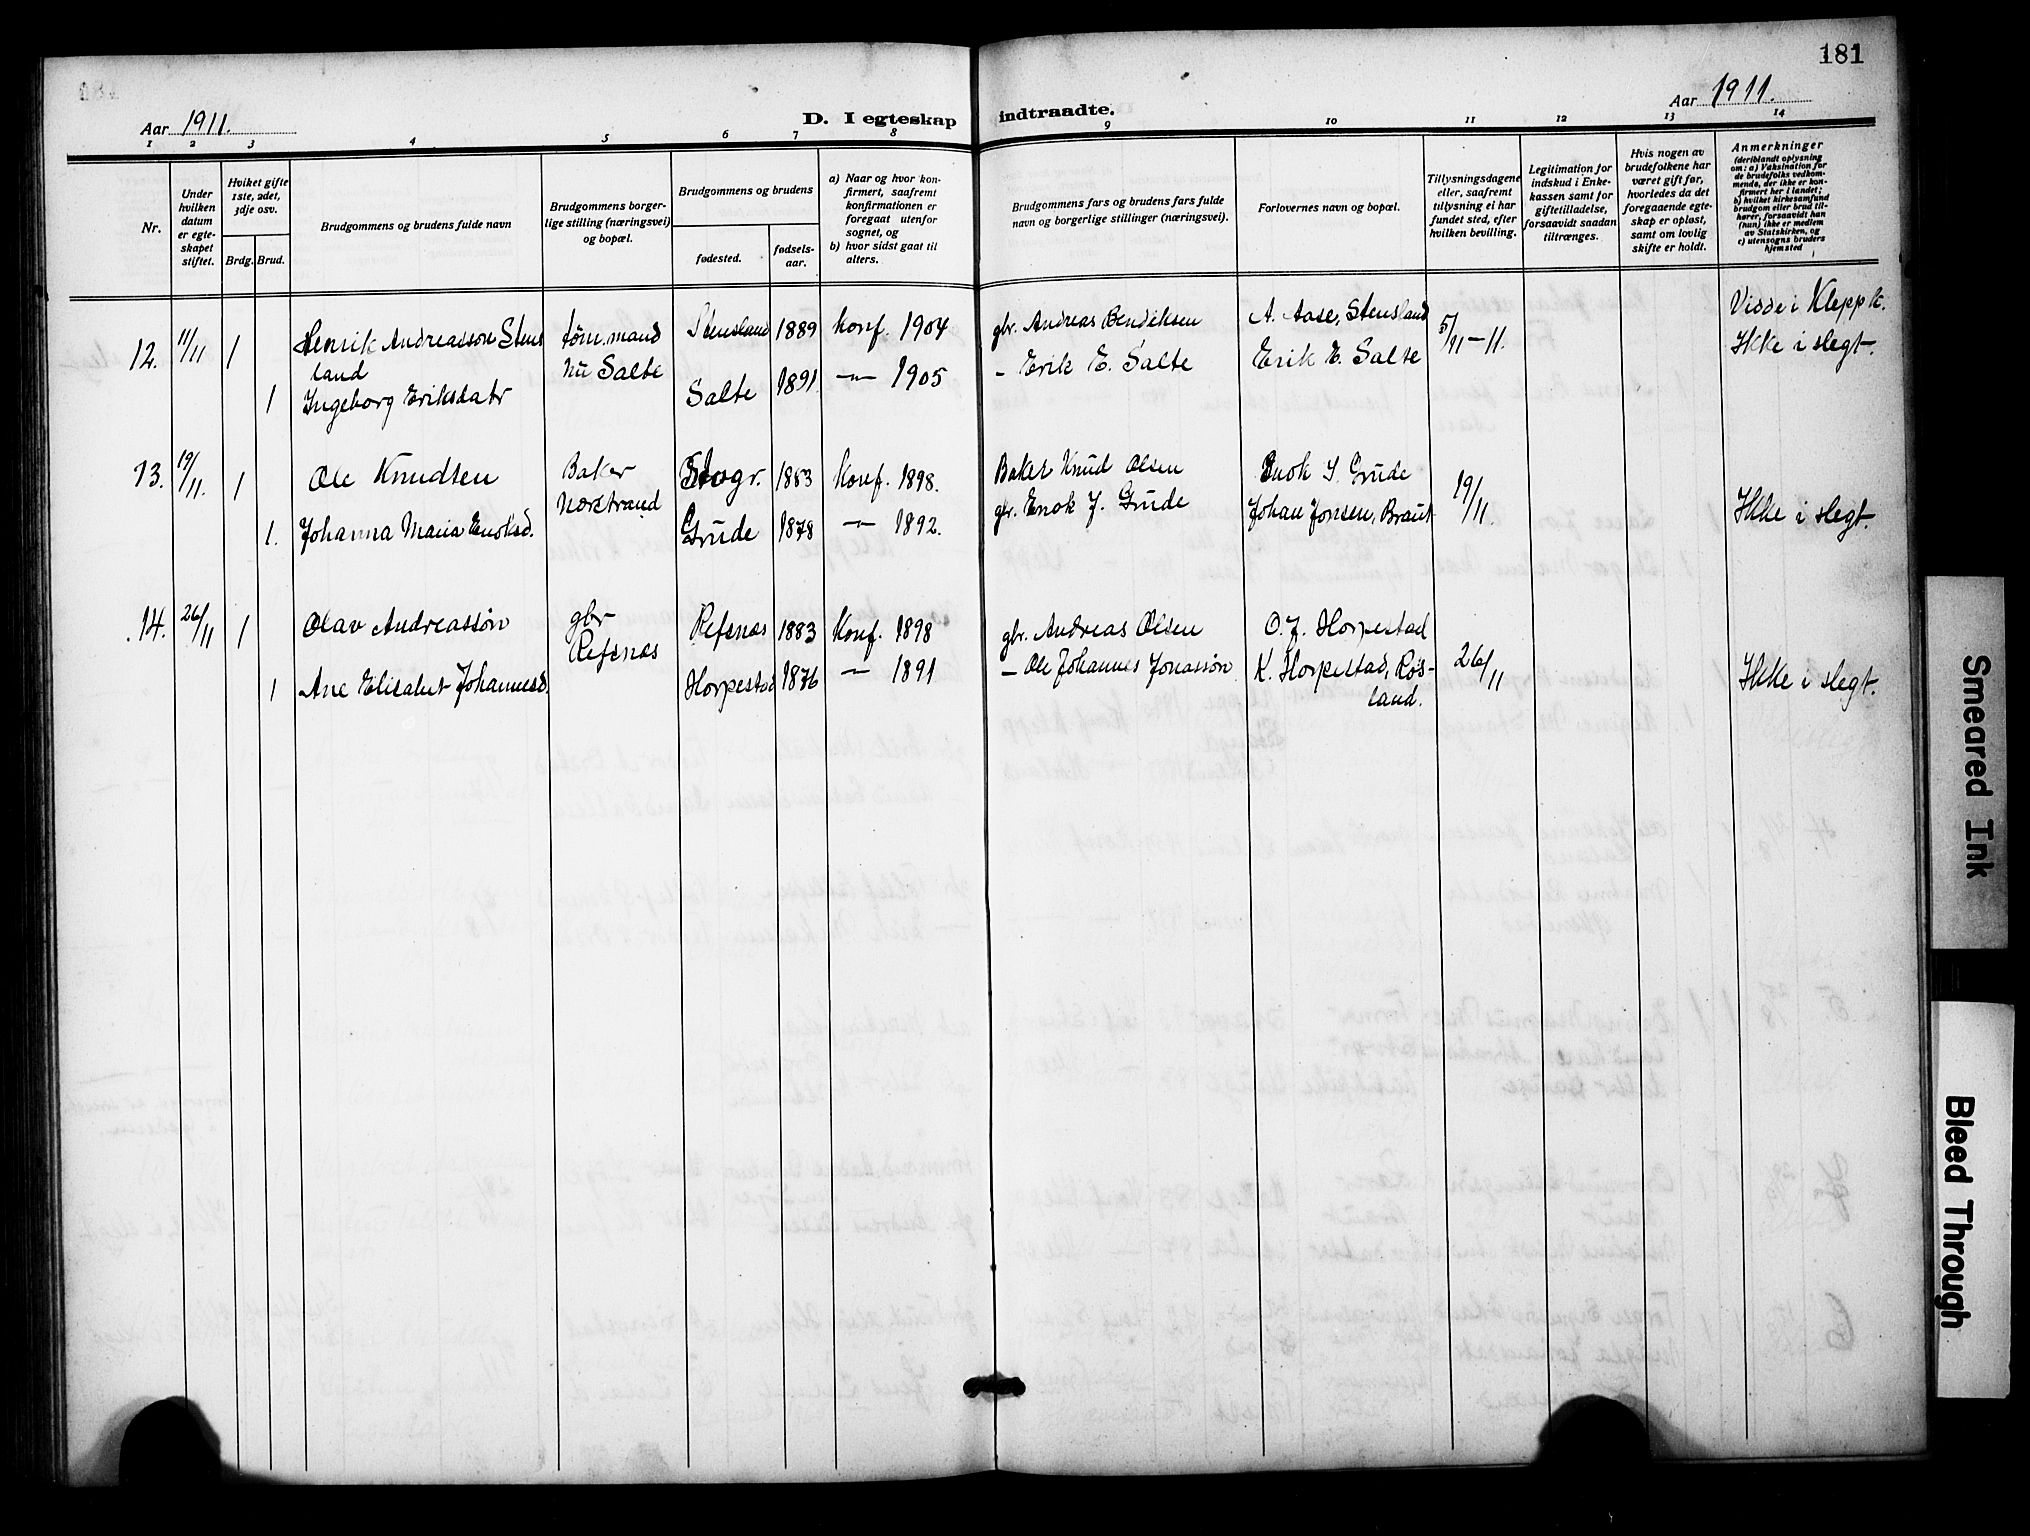 181
Aar 1911.
D. I egteskap indtraadte.
Aar 1911.
1 2 3 4 5 6 7 8 9 10 11 12 13 14
Nr.
Under hvilken datum er egte-skapet stiftet.
Hviket gifte 1ste, 2det, 3dje osv.
Brdg. Brud.
Brudgommens og brudens fulde navn
Brudgommens borger-lige stilling (næringsvei) og bopæl.
Brudgommens og brudens
fødested.
fødsels-aar.
a) Naar og hvor kon-firmert, saafremt konfirmationen er foregaat utenfor sognet, og
b) hvor sidst gaat til alters.
Brudgommens fars og brudens fars fulde navn og borgerlige stillinger (næringsvei).
Forlovernes navn og bopæl.
Tillysningsdagene eller, saafremt tillysning ei har fundet sted, efter hvilken bevilling.
Legitimation for indskud i Enke-kassen samt for giftetilladelse, forsaavidt saadan tiltrænges.
Hvis nogen av brudefolkene har været gift før, hvorledes da det foregaaende egte-skap er opløst, samt om lovlig skifte er holdt.
Anmerkninger
(deriblandt oplysning om: a) Vaksination for de brudefolks vedkom-mende, der ikke er kon-firmert her i landet; b) hvilket kirkesamfund brudgom eller brud til-hører, forsaavidt han (hun) ikke er medlem av Statskirken, og c) utensogns bruders hjemsted
12. 11/11 1 Henrik Andreassøn Stens tøm.mand Stensland 1889 Konf. 1904 gbr. Andreas Bendiksen A. Aase, Stensland 5/11-11. Viede i Klepp k.
land nu Salte - Erik E. Salte Erik E. Salte Ikke i slegt.
1 Ingeborg Eriksdatr Salte 1891. -"- 1905
13. 19/11. 1 Ole Knudsen Baker Stvgr. 1883 Konf. 1898. Baker Knud Olsen Enok J. Grude 19/11.
Nærstrand gbr. Enok J. Grude Johan Jonsen, Braut Ikke i slegt.
1. Johanna Maria Enoksd. Grude 1878 -"- 1892.
14. 26/11 1 Olav Andreassøn gbr Refsnæs 1883 Konf. 1898 gbr. Andreas Olsen O. J. Horpestad 26/11
Refsnæs - Ole Johannes Jonassøn K. Horpestad, Røs-
1 Ane Elisabet Johannesd. Horpestad 1876 -"- 1891 land. Ikke i slegt.
Smeared Ink
Bleed Through